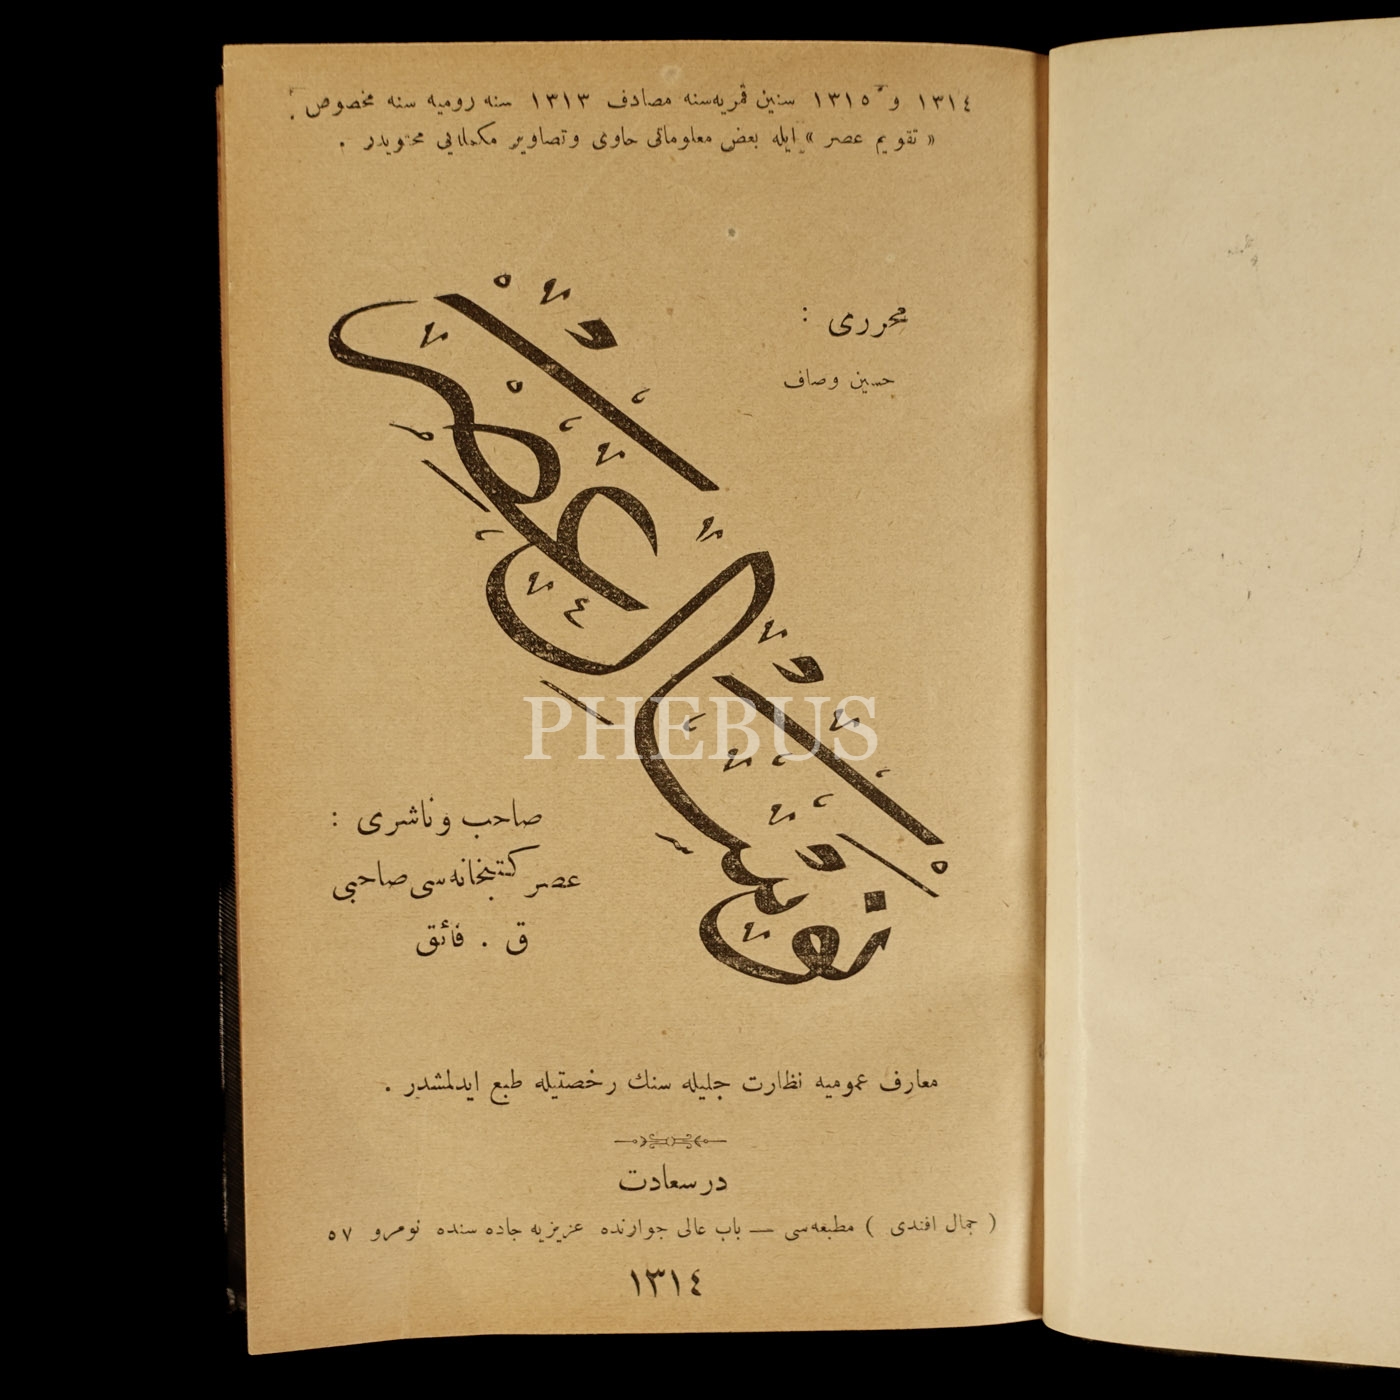 ١٣١٤ و ١٣١٥ سنين قمريه‌سنه مصادف ١٣١٣ سنه روميه سنه مخصوص
« تقويم عصر » ايله بعض معلوماتى حاوى وتصاوير مكمله‌يى محتويدر .
محررى :
حسين وصاف
نوسال عصر
PHEBUS
صاحب وناشرى :
عصر كتبخانه‌سى صاحبى
ق . فائق
معارف عموميه نظارت جليله سنك رخصتيله طبع ايدلمشدر .
درسعادت
( جمال افندى ) مطبعه‌سى — باب عالى جوارنده عزيزيه جاده سنده نومرو ٥٧
١٣١٤